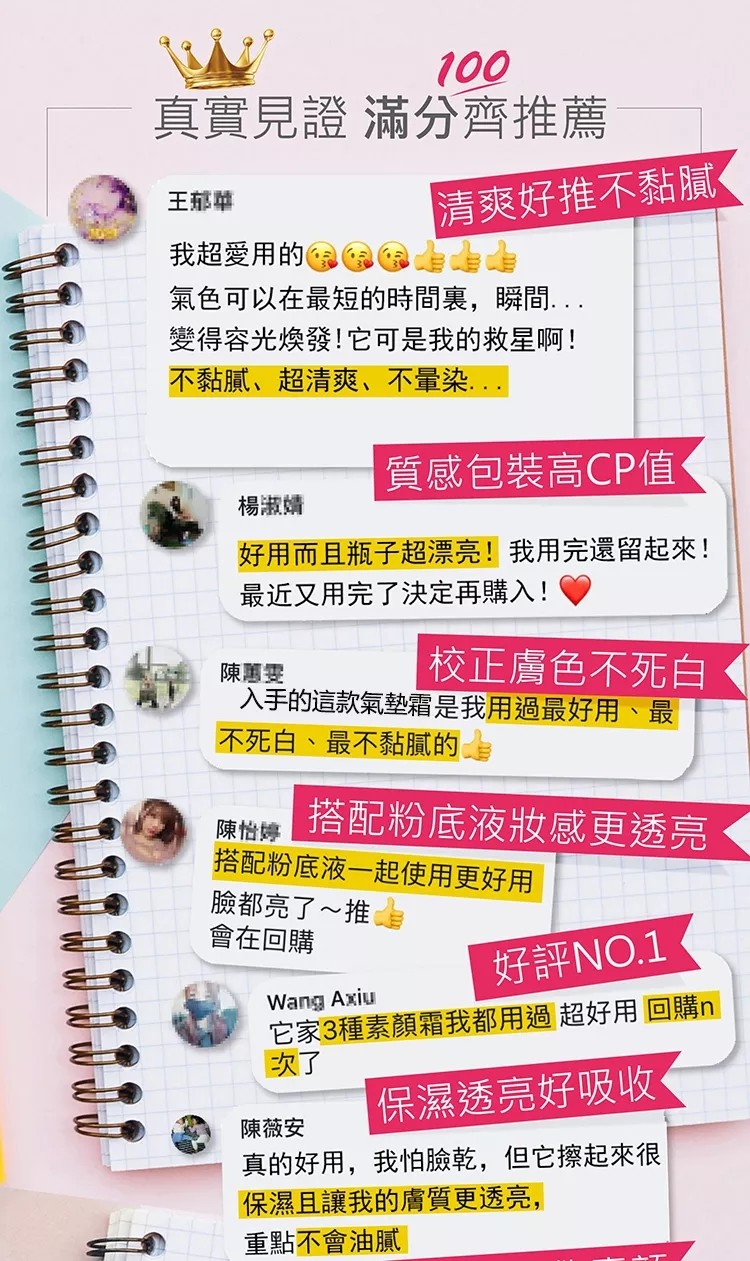 100
真實見證 滿分齊推薦
清爽好推不黏膩
王郁華
我超愛用的😘😘😘👍👍👍
氣色可以在最短的時間裏，瞬間...
變得容光煥發！它可是我的救星啊！
不黏膩、超清爽、不暈染...
質感包裝高CP值
楊淑婧
好用而且瓶子超漂亮！我用完還留起來！
最近又用完了決定再購入！❤️
校正膚色不死白
陳蕙雯
入手的這款氣墊霜是我用過最好用、最
不死白、最不黏膩的👍
搭配粉底液妝感更透亮
陳怡婷
搭配粉底液一起使用更好用
臉都亮了～推👍
會在回購
好評NO.1
Wang Axiu
它家3種素顏霜我都用過 超好用 回購n
次了
保濕透亮好吸收
陳薇安
真的好用，我怕臉乾，但它擦起來很
保濕且讓我的膚質更透亮，
重點不會油膩